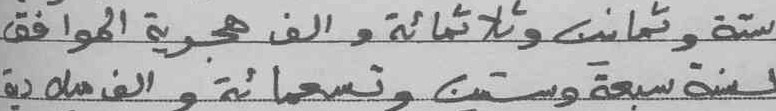 ستة وثمانين وثلاثمائة والف هجرية الموافق
لسنة سبعة وستين وتسعمائة والف ميلادية